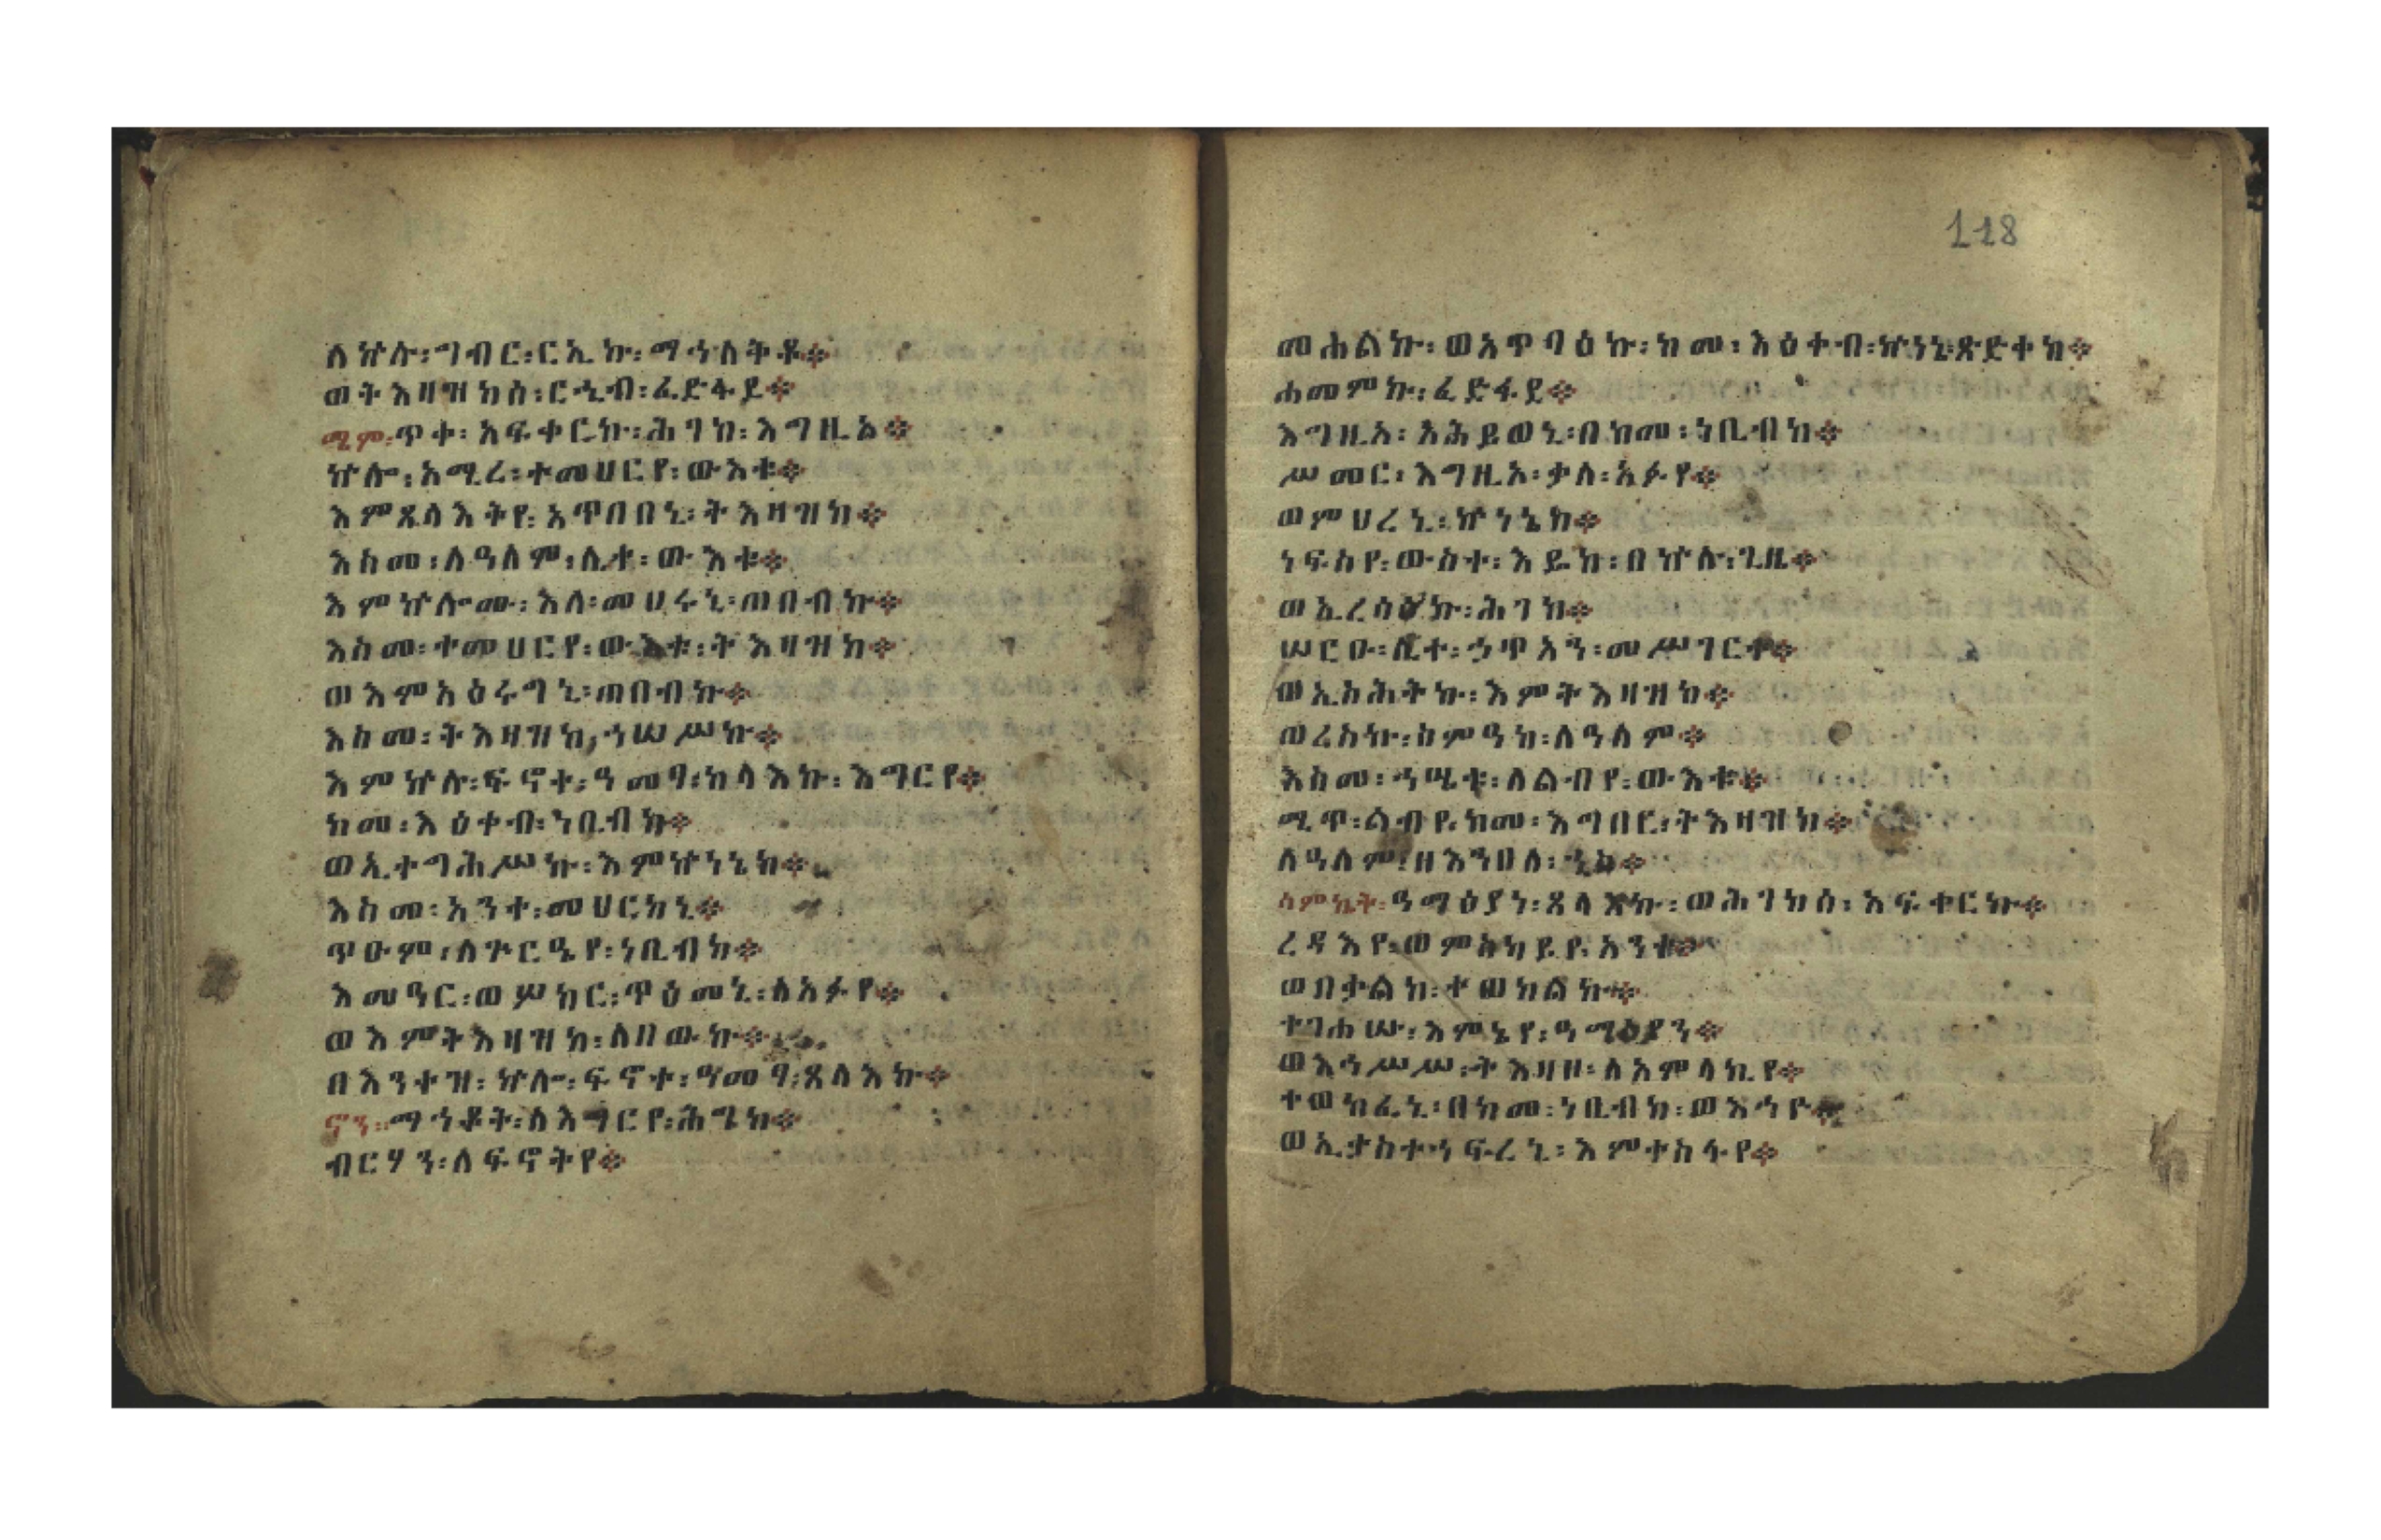 ለኵሉ፡ግብር፡ርኢኩ፡ማኅለቅቶ።
ወትእዛዝከሰ፡ርኂብ፡ፈድፋደ።
ሜም፡ጥቀ፡አፍቀርኩ፡ሕገከ፡እግዚአ።
ኵሎ፡አሚረ፡ተመሀርየ፡ውእቱ።
እምጸላእትየ፡አጥበበኒ፡ትእዛዝከ።
እስመ፡ለዓለም፡ሊተ፡ውእቱ።
እምኵሎሙ፡እለ፡መሀሩኒ፡ጠበብኩ።
እስመ፡ተመሀርየ፡ውእቱ፡ትእዛዝከ።
ወእምአዕሩግኒ፡ጠበብኩ።
እስመ፡ትእዛዝከ፡ኀሠሥኩ።
እምኵሉ፡ፍኖተ፡ዓመፃ፡ከላእኩ፡እግርየ።
ከመ፡እዕቀብ፡ነቢብከ።
ወኢተግሕሥኩ፡እምኵነኔከ።
እስመ፡አንተ፡መሀርከኒ።
ጥዑም፡ለጕርዔየ፡ነቢብከ።
እመዓር፡ወሦከር፡ጥዕመኒ፡ለአፉየ።
ወእምትእዛዝከ፡ለበውኩ።
በእንተዝ፡ኵሎ፡ፍኖተ፡ዓመፃ፡ጸላእኩ።
ኖን፡ማኅቶት፡ለእግርየ፡ሕግከ።
ብርሃን፡ለፍኖትየ።
118
መሐልኩ፡ወአጥባዕኩ፡ከመ፡እዕቀብ፡ኵነኔ፡ጽድቀከ።
ሐመምኩ፡ፈድፋደ።
እግዚአ፡አሕይወኒ፡በከመ፡ነቢብከ።
ሥመር፡እግዚአ፡ቃለ፡አፉየ።
ወምሀረኒ፡ኵነኔከ።
ነፍስየ፡ውስተ፡እዴከ፡በኵሉ፡ጊዜ።
ወኢረሳዕኩ፡ሕገከ።
ሠርዑ፡ሊተ፡ኃጥአን፡መሥገርተ።
ወኢስሕትኩ፡እምትእዛዝከ።
ወረስኩ፡ስምዓከ፡ለዓለም።
እስመ፡ኀሤቱ፡ለልብየ፡ውእቱ።
ሜጥ፡ልብየ፡ከመ፡እግበር፡ትእዛዝከ።
ለዓለም፡ዘእንበለ፡
ሳምኬት፡ዓማዕያነ፡ጸላእኩ፡ወሕገከሰ፡አፍቀርኩ።
ረዳእየ፡ወምስካይየ፡አንተ።
ወበቃልከ፡ተወከልኩ።
ተገሐሡ፡እምኔየ፡ዓማዕያን።
ወእኅሥሥ፡ትእዛዘ፡ለአምላኪየ።
ተወከፈኒ፡በከመ፡ነቢብከ፡ወእኅዮ።
ወኢታስተኀፍረኒ፡እምተስፋየ።